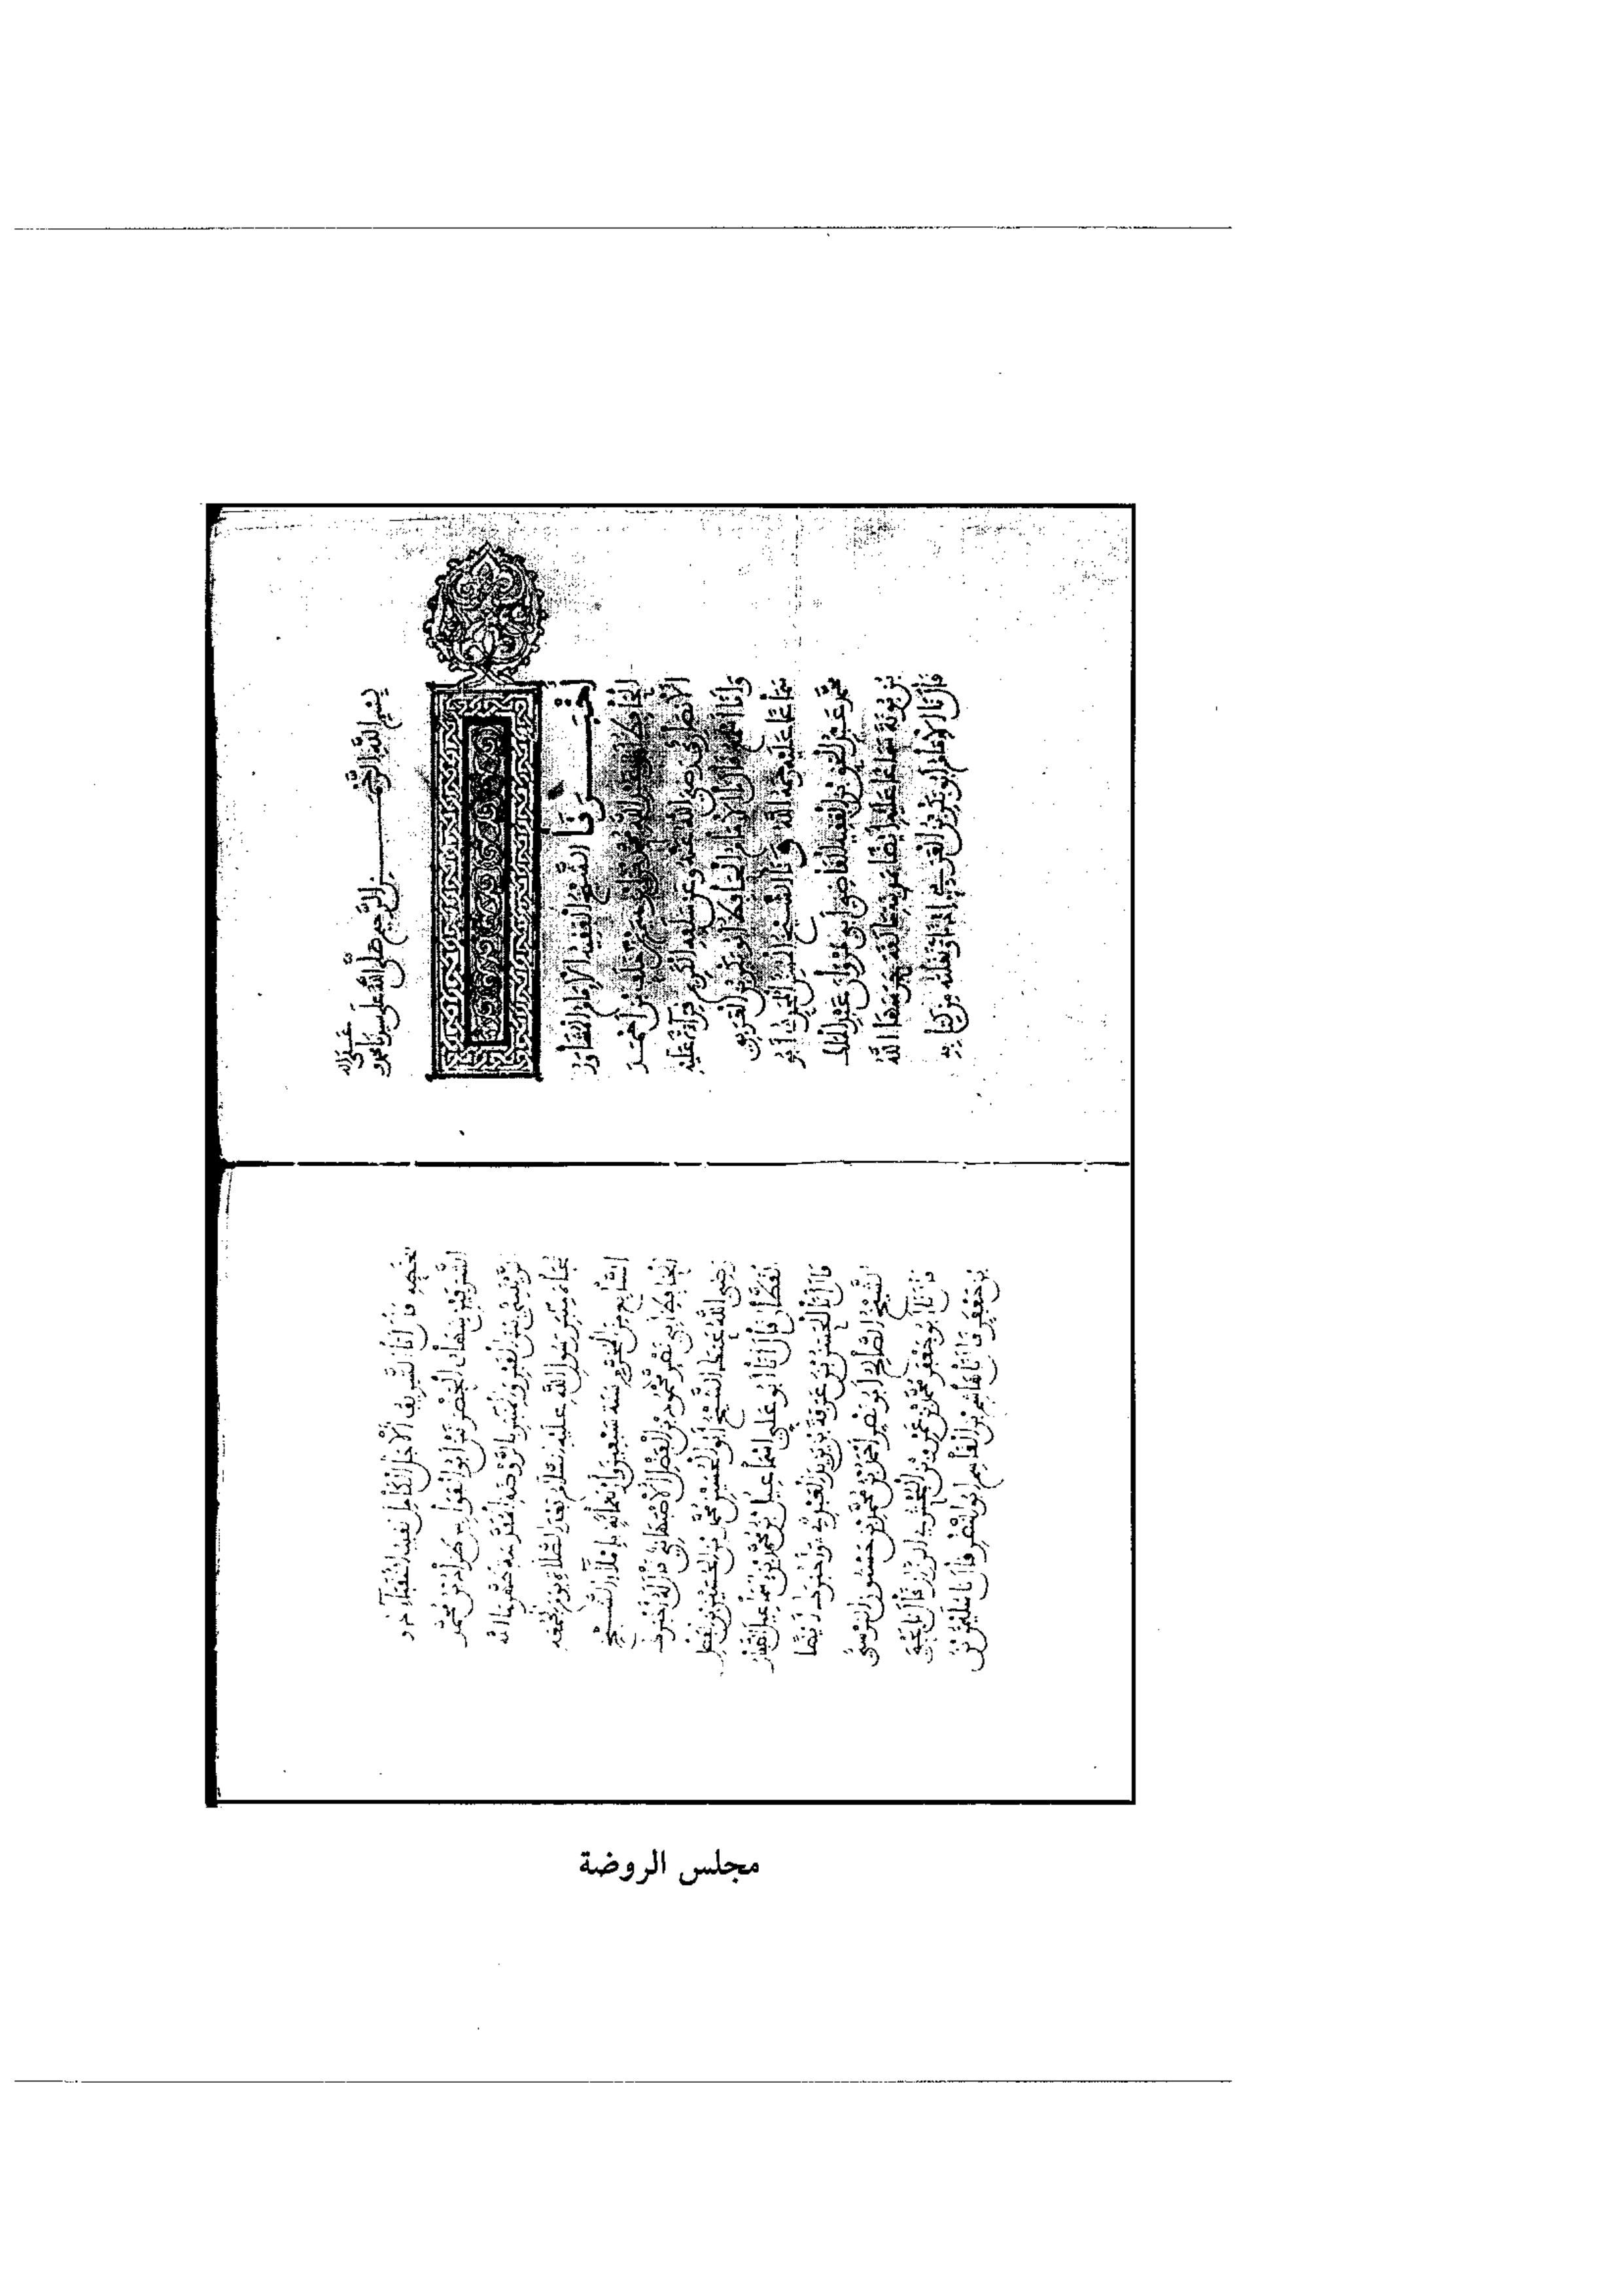 بِسْمِ اللهِ الرَّحْمَنِ الرَّحِيمِ صَلَّى اللهُ عَلَى سيدنا محمد و
الشيخ الفقيه الإمام
خلف بن أحمد
الأنصاري رضي الله عنه وعن سلفه الكريم قراءة عليه
وأنا أسمع قال نا الإمام الحافظ أبو بكر بن العربي
سماعا عليه رحمه الله ونا الشيخ أبو
محمد عبد الحق بن الفقيه القاضي أبي مروان عبد الملك
بن بونة سماعا عليه أيضا حرسها الله
قال نا الإمام أبو بكر بن العربي
قال أنا الشريف الأجل الكامل نقيب النقباء ذو
الشرفين شهاب الحضرتين أبو الفوارس طراد بن محمد
الزينبي بين القبر والمنبر بالروضة
تجاه منبر رسول الله عليه السلام بعد الصلاة يوم الجمعة
السابع من المحرم سنة سبعين وأربعمائة بإملاء الشيخ
الحافظ أبي نصر محمود بن الفضل الأصبهاني قال له أخبرك
رضي الله عنك الشيخ أبو الحسين محمد بن الحسين بن الفضل
القطان قال أنا أبو علي إسماعيل بن محمد بن إسماعيل الصفار
قال نا الحسن بن عرفة بن يزيد العبدي وأخبرك أيضا
الشيخ الصالح أبو نصر أحمد بن محمد بن حسنون النرسي
قال نا أبو جعفر محمد بن عمرو بن البختري الرزاز
بن جعفر قال نا هاشم بن القاسم أبو النضر قال نا سليمان بن
مجلس الروضة